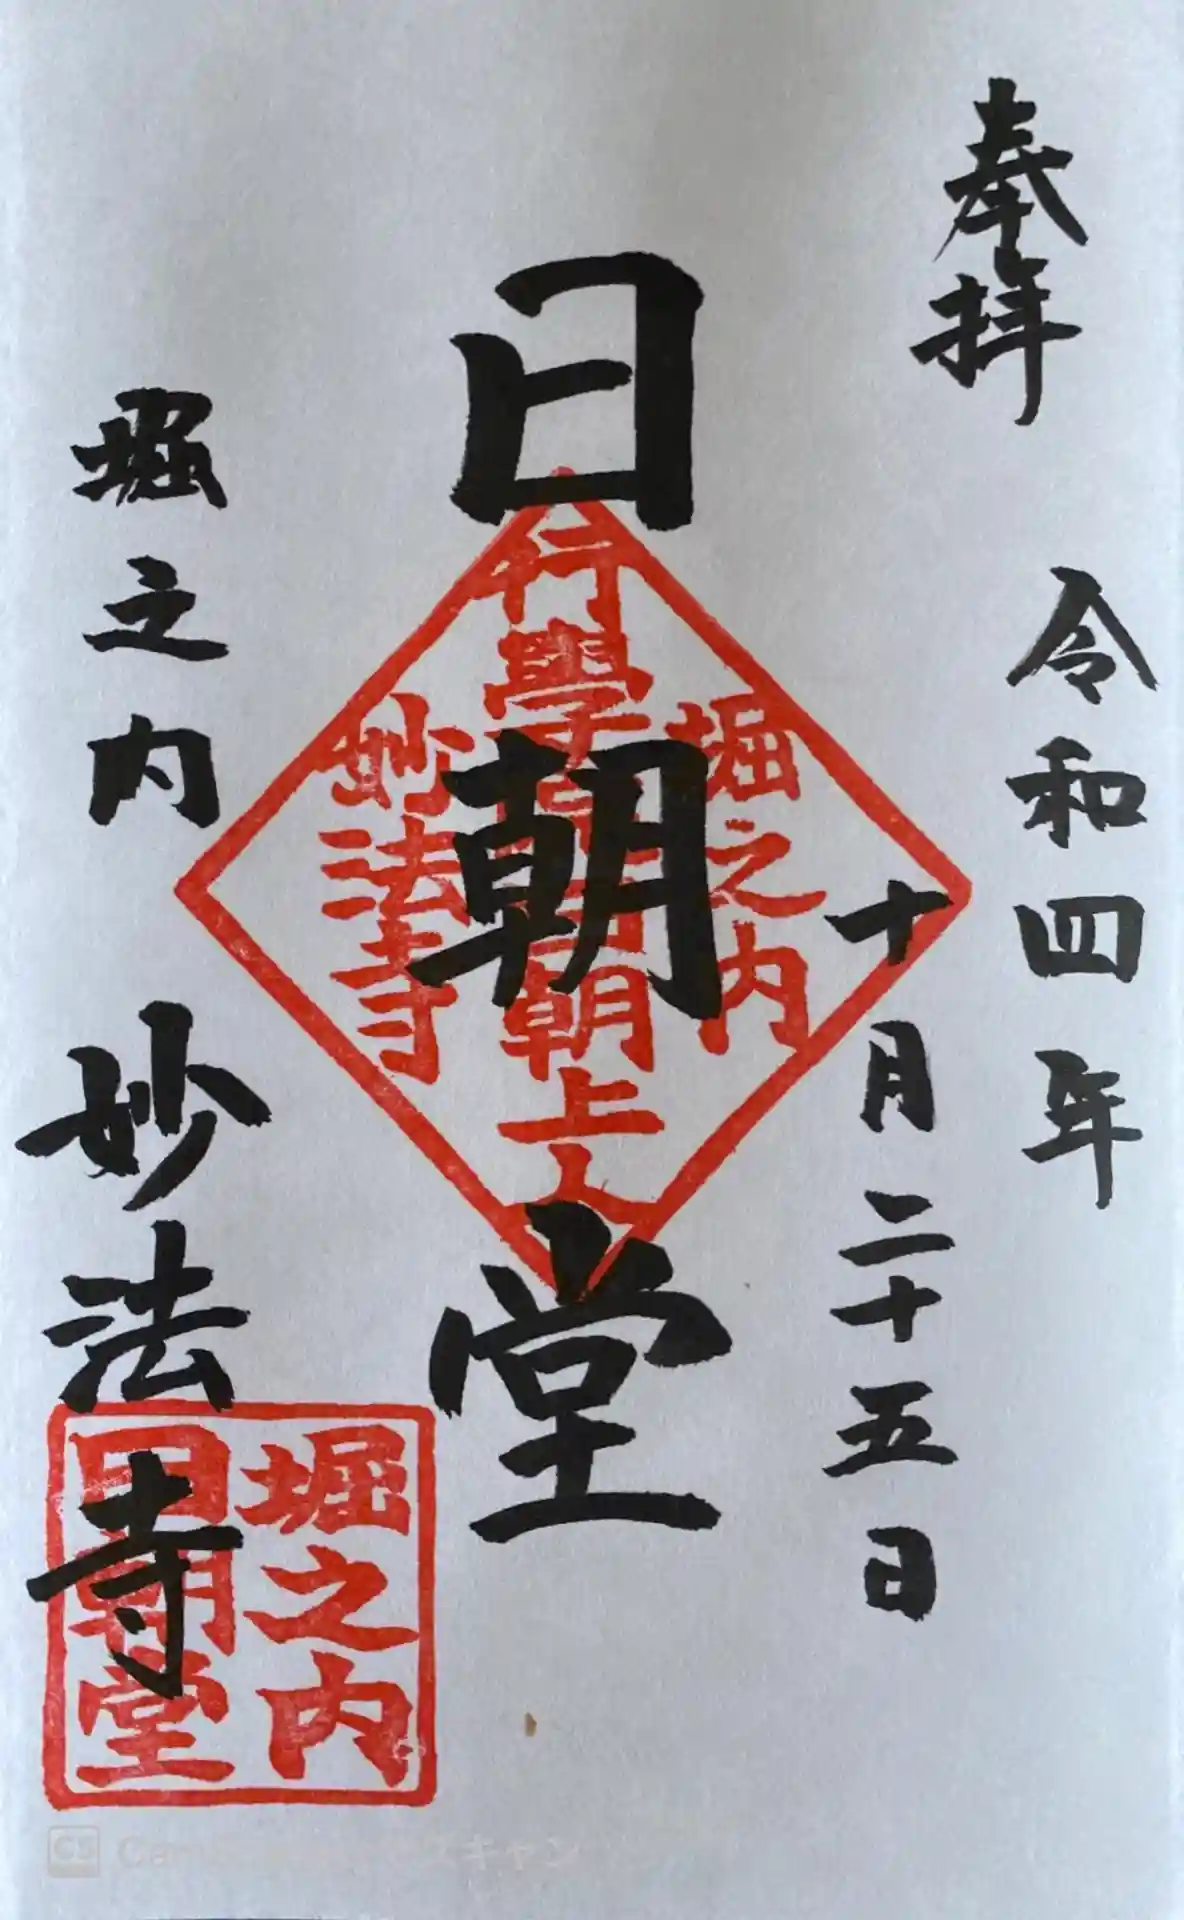 奉拝
令和四年
十月二十五日
日朝堂
堀之内
妙法寺
堀之内
行學院日朝上人
妙法寺
堀之内
日朝堂
CS
スキャン